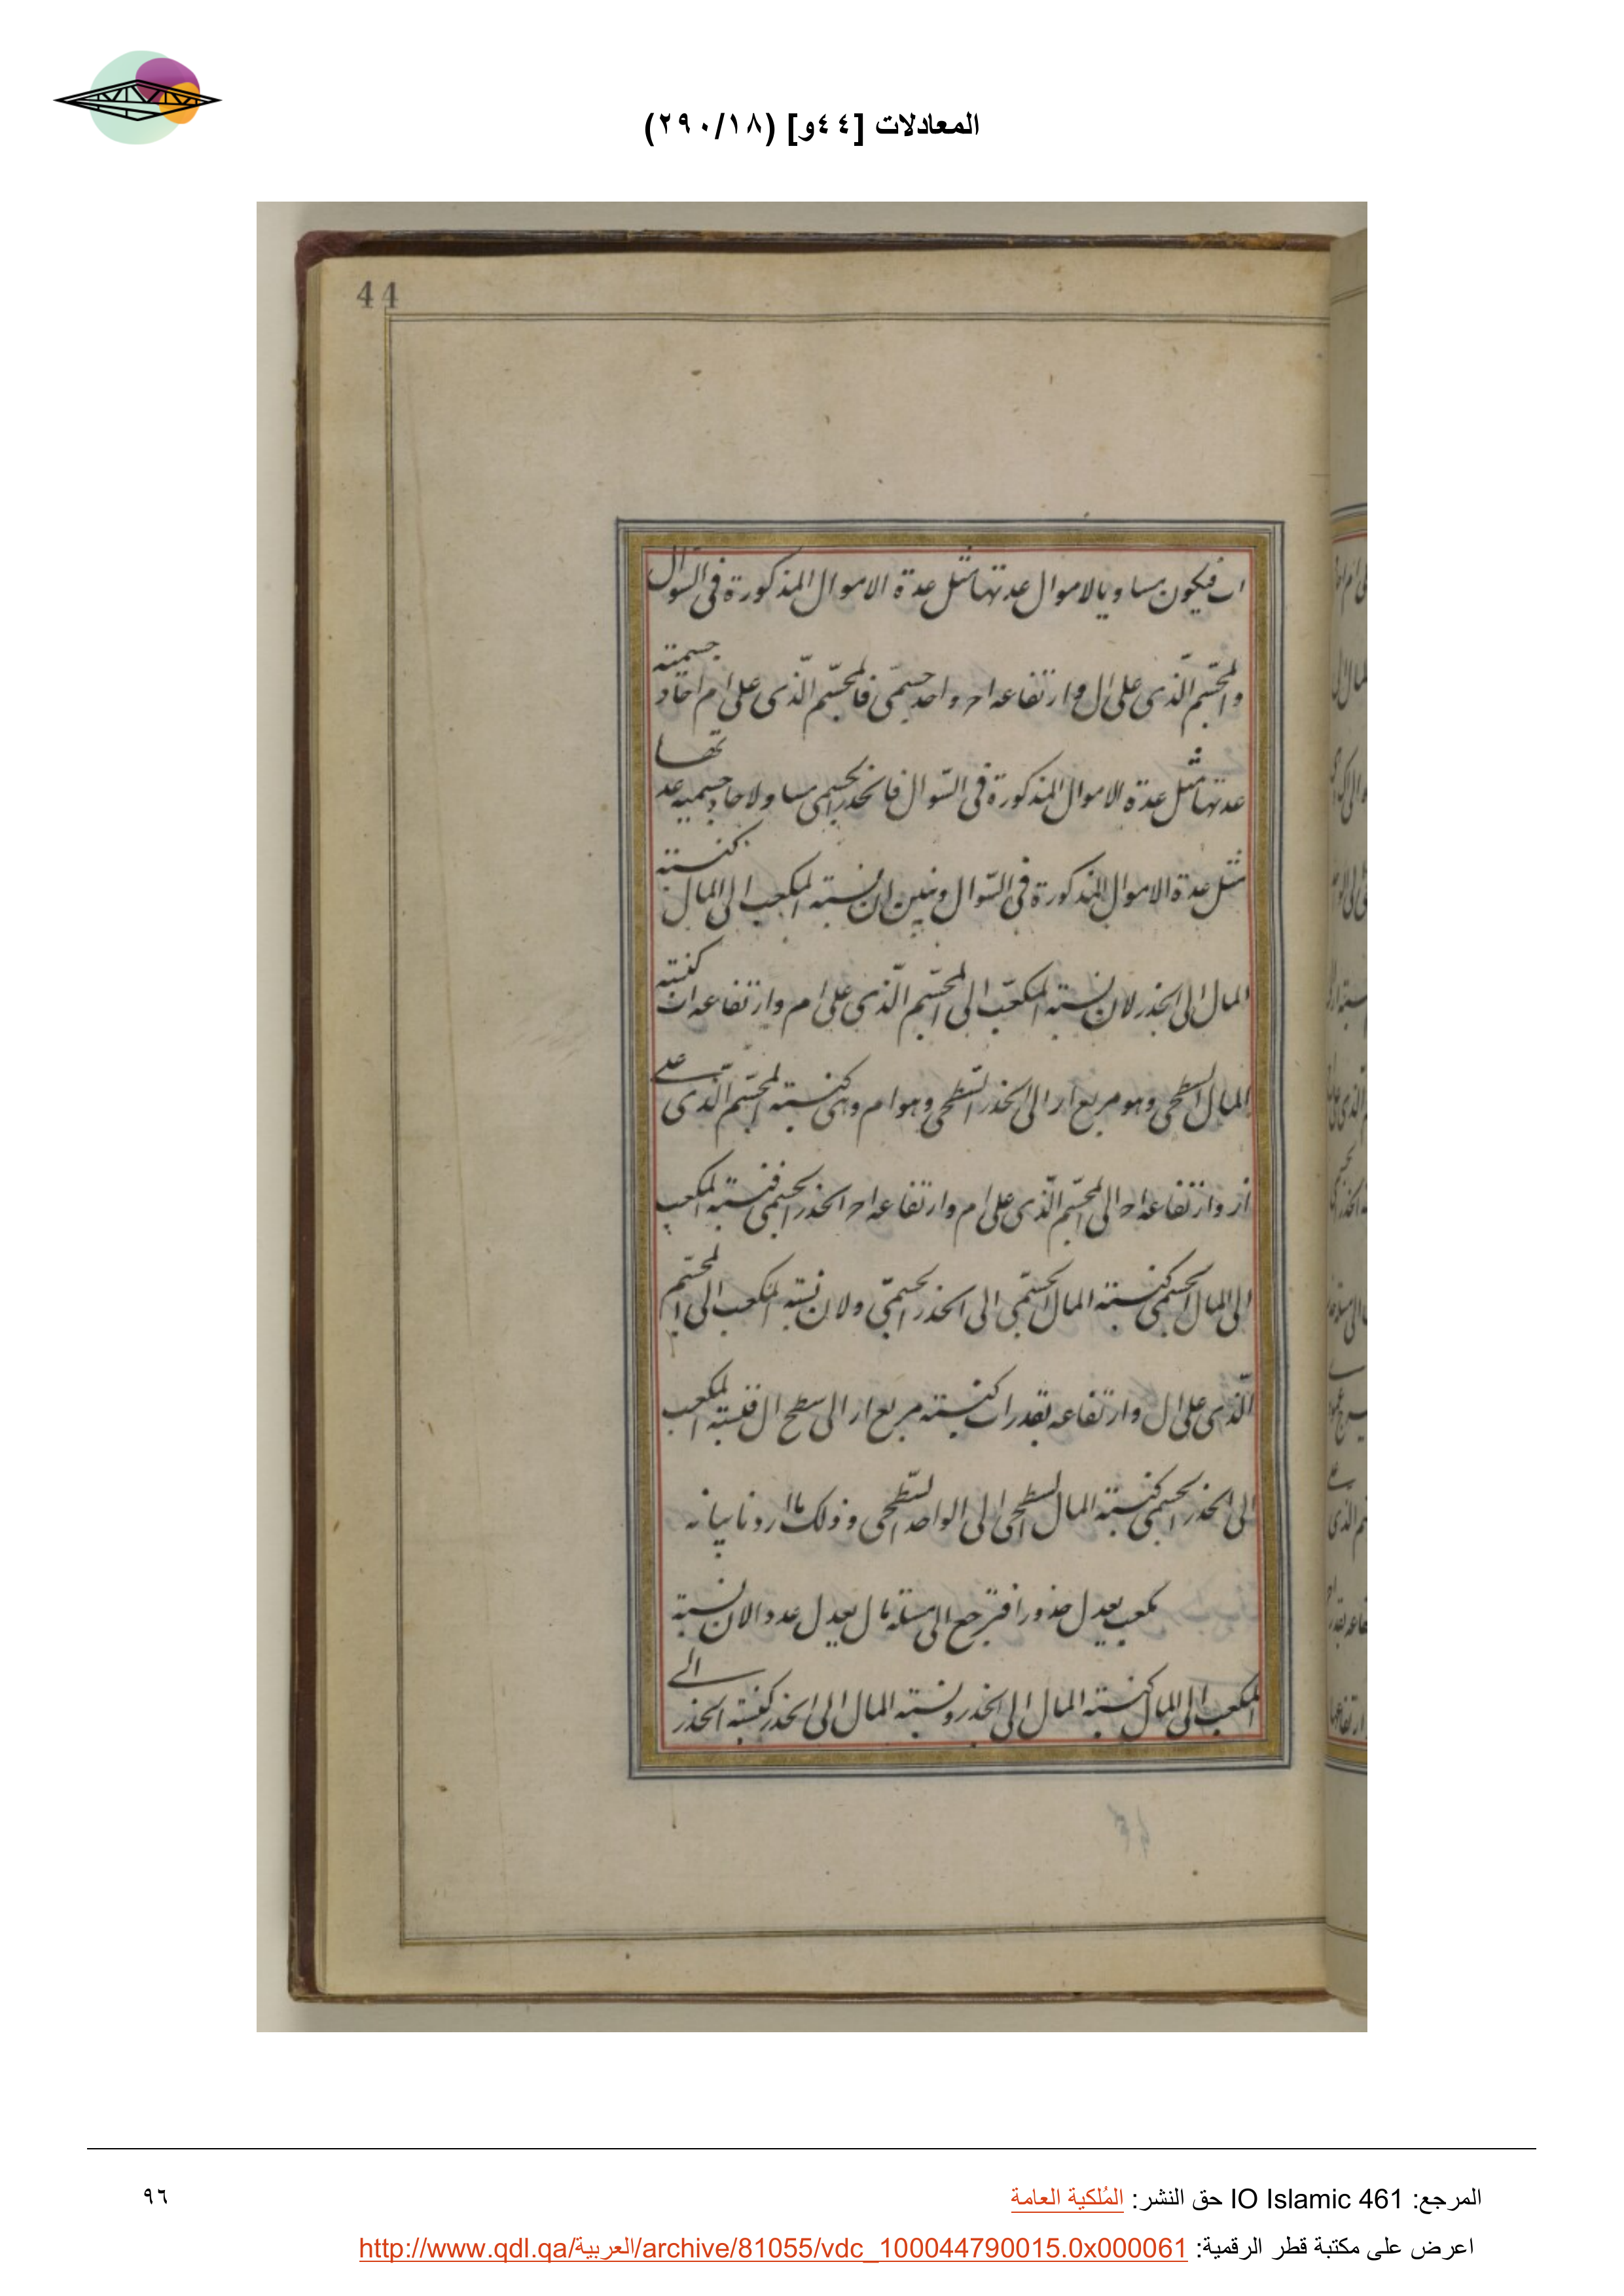 المعادلات [٤٤و] (٢٩٠/١٨)
44
اب فيكون مساويا لاموال عدتها مثل عدة الاموال المذكورة فى السّوال
والمجسّم الّذى على ال وارتفاعه اح واحد جسمىّ فالمجسّم الّذى على ام احاد جسمية
عدتها مثل عدة الاموال المذكورة فى السّوال فالجذر الجسمى مساو لاحاد جسميه عدتها
مثل عدة الاموال المذكورة فى السّوال ونبين ان نسبة المكعب الى المال كنسبة
المال الى الجذر لان نسبة المكعّب الى المجسّم الّذى على ام وارتفاعه اب كنسبة
المال السّطحى وهو مربع ار الى الجذر السّطحى وهو ام وهى كنسبة المجسّم الّذى على
ار وارتفاعه اح الى المجسّم الّذى على ام وارتفاعه اح الجذر الجسمى فنسبة المكعب
الى المال الجسمى كنسبة المال الجسمّى الى الجذر الجسمىّ ولان نسبة المكعب الى المجسّم
الّذى على ال وارتفاعه بقدر اب كنسبة مربع ار الى سطح ال فنسبة المكعب
الى الجذر الجسمى كنسبة المال السّطحى الى الواحد السّطحى وذلك ما اردنا بيانه
مكعب يعدل جذورا فترجع الى مسئلة مال يعدل عددا لان نسبة
المكعب الى المال كنسبة المال الى الجذر ونسبة المال الى الجذر كنسبة الجذر الى
المرجع: IO Islamic 461 حق النشر: المُلكية العامة
٩٦
اعرض على مكتبة قطر الرقمية: http://www.qdl.qa/العربية/archive/81055/vdc_100044790015.0x000061